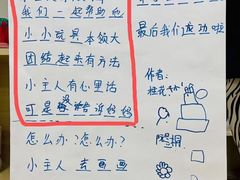 我们一起帮助他
小小玩具本领大
团结起来有方法
小主人有心里话
可是没告诉妈妈
怎么办?怎么办?
小主人去画画
最后我们成功啦
作者: